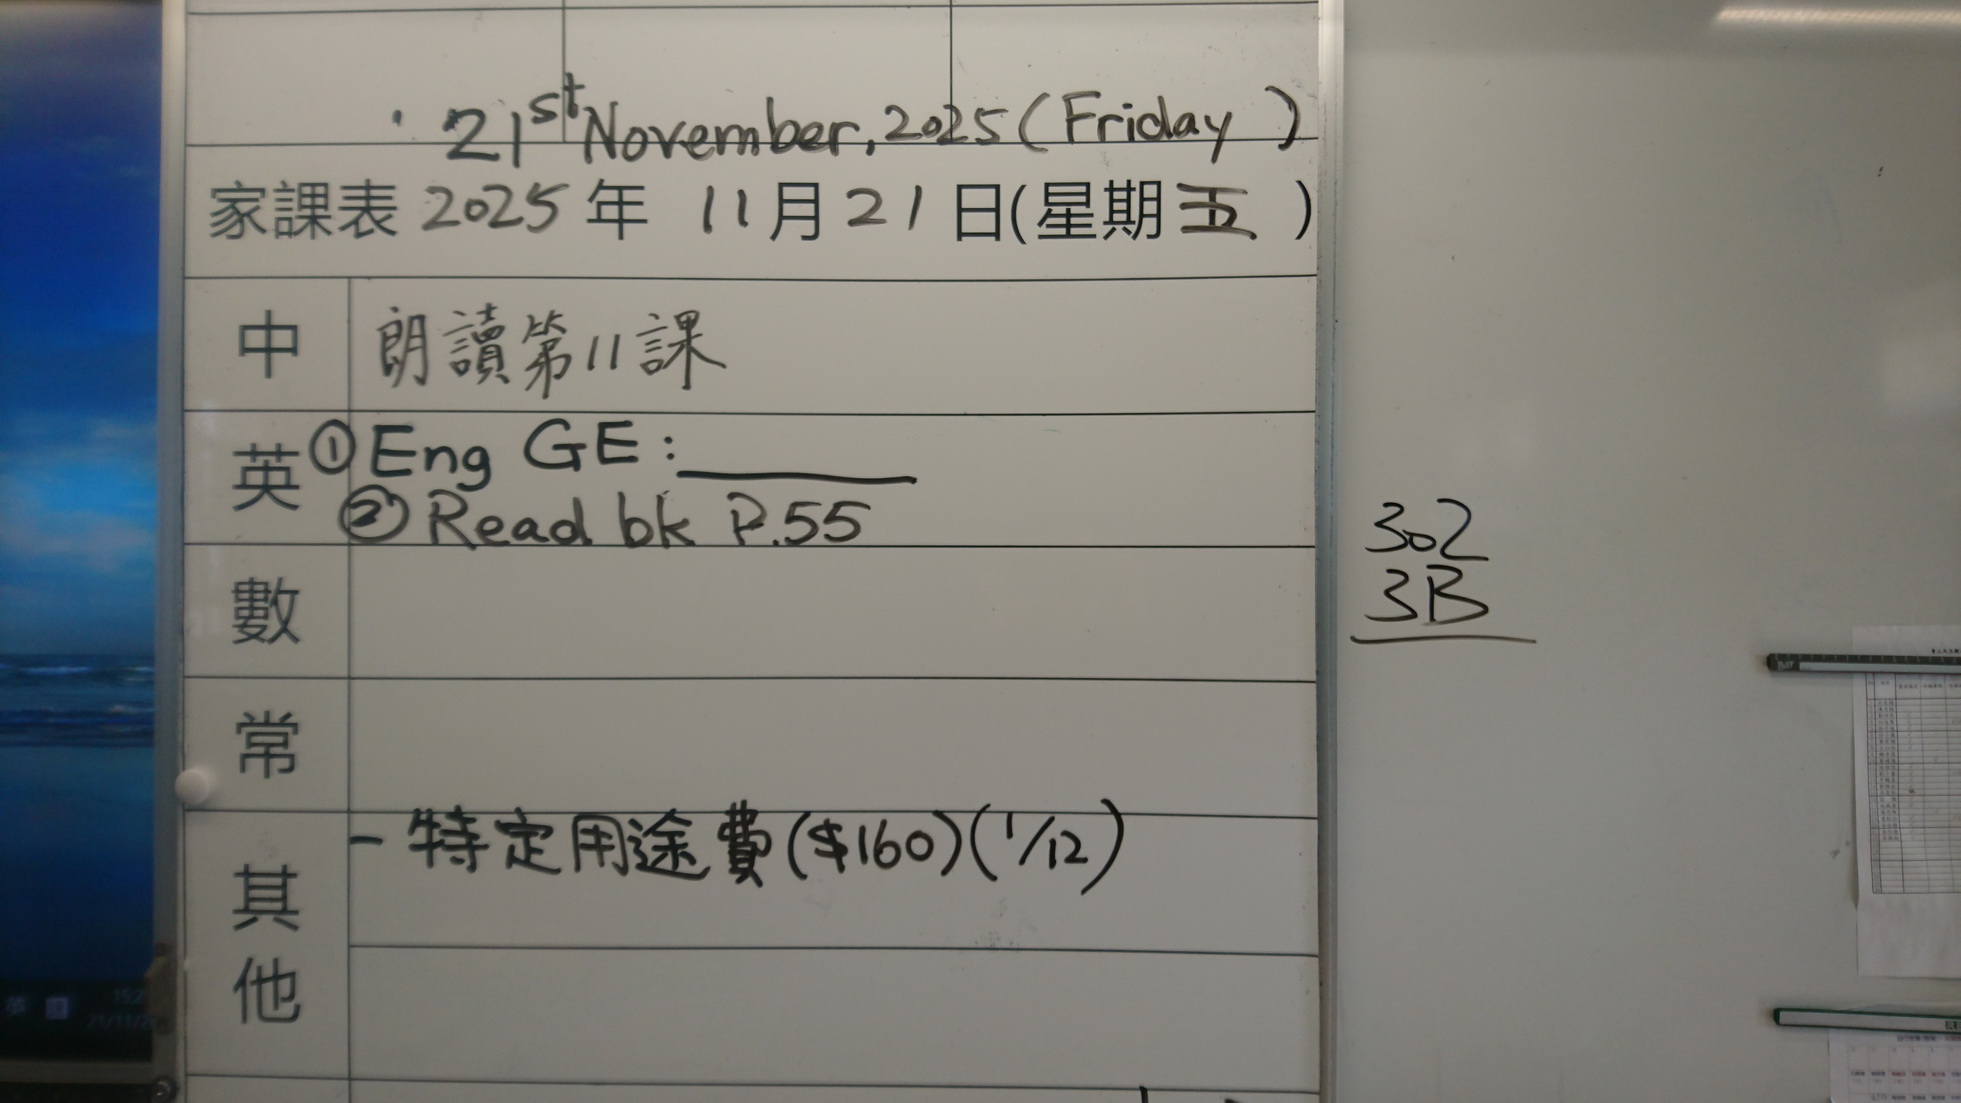 21st November, 2025 (Friday)
家課表 2025 年 11 月 21 日(星期 五 )
中 朗讀第11課
英 ① Eng GE : ______
② Read bk P.55
數
常
其他 - 特定用途費($160)(1/12)
302
3B
英